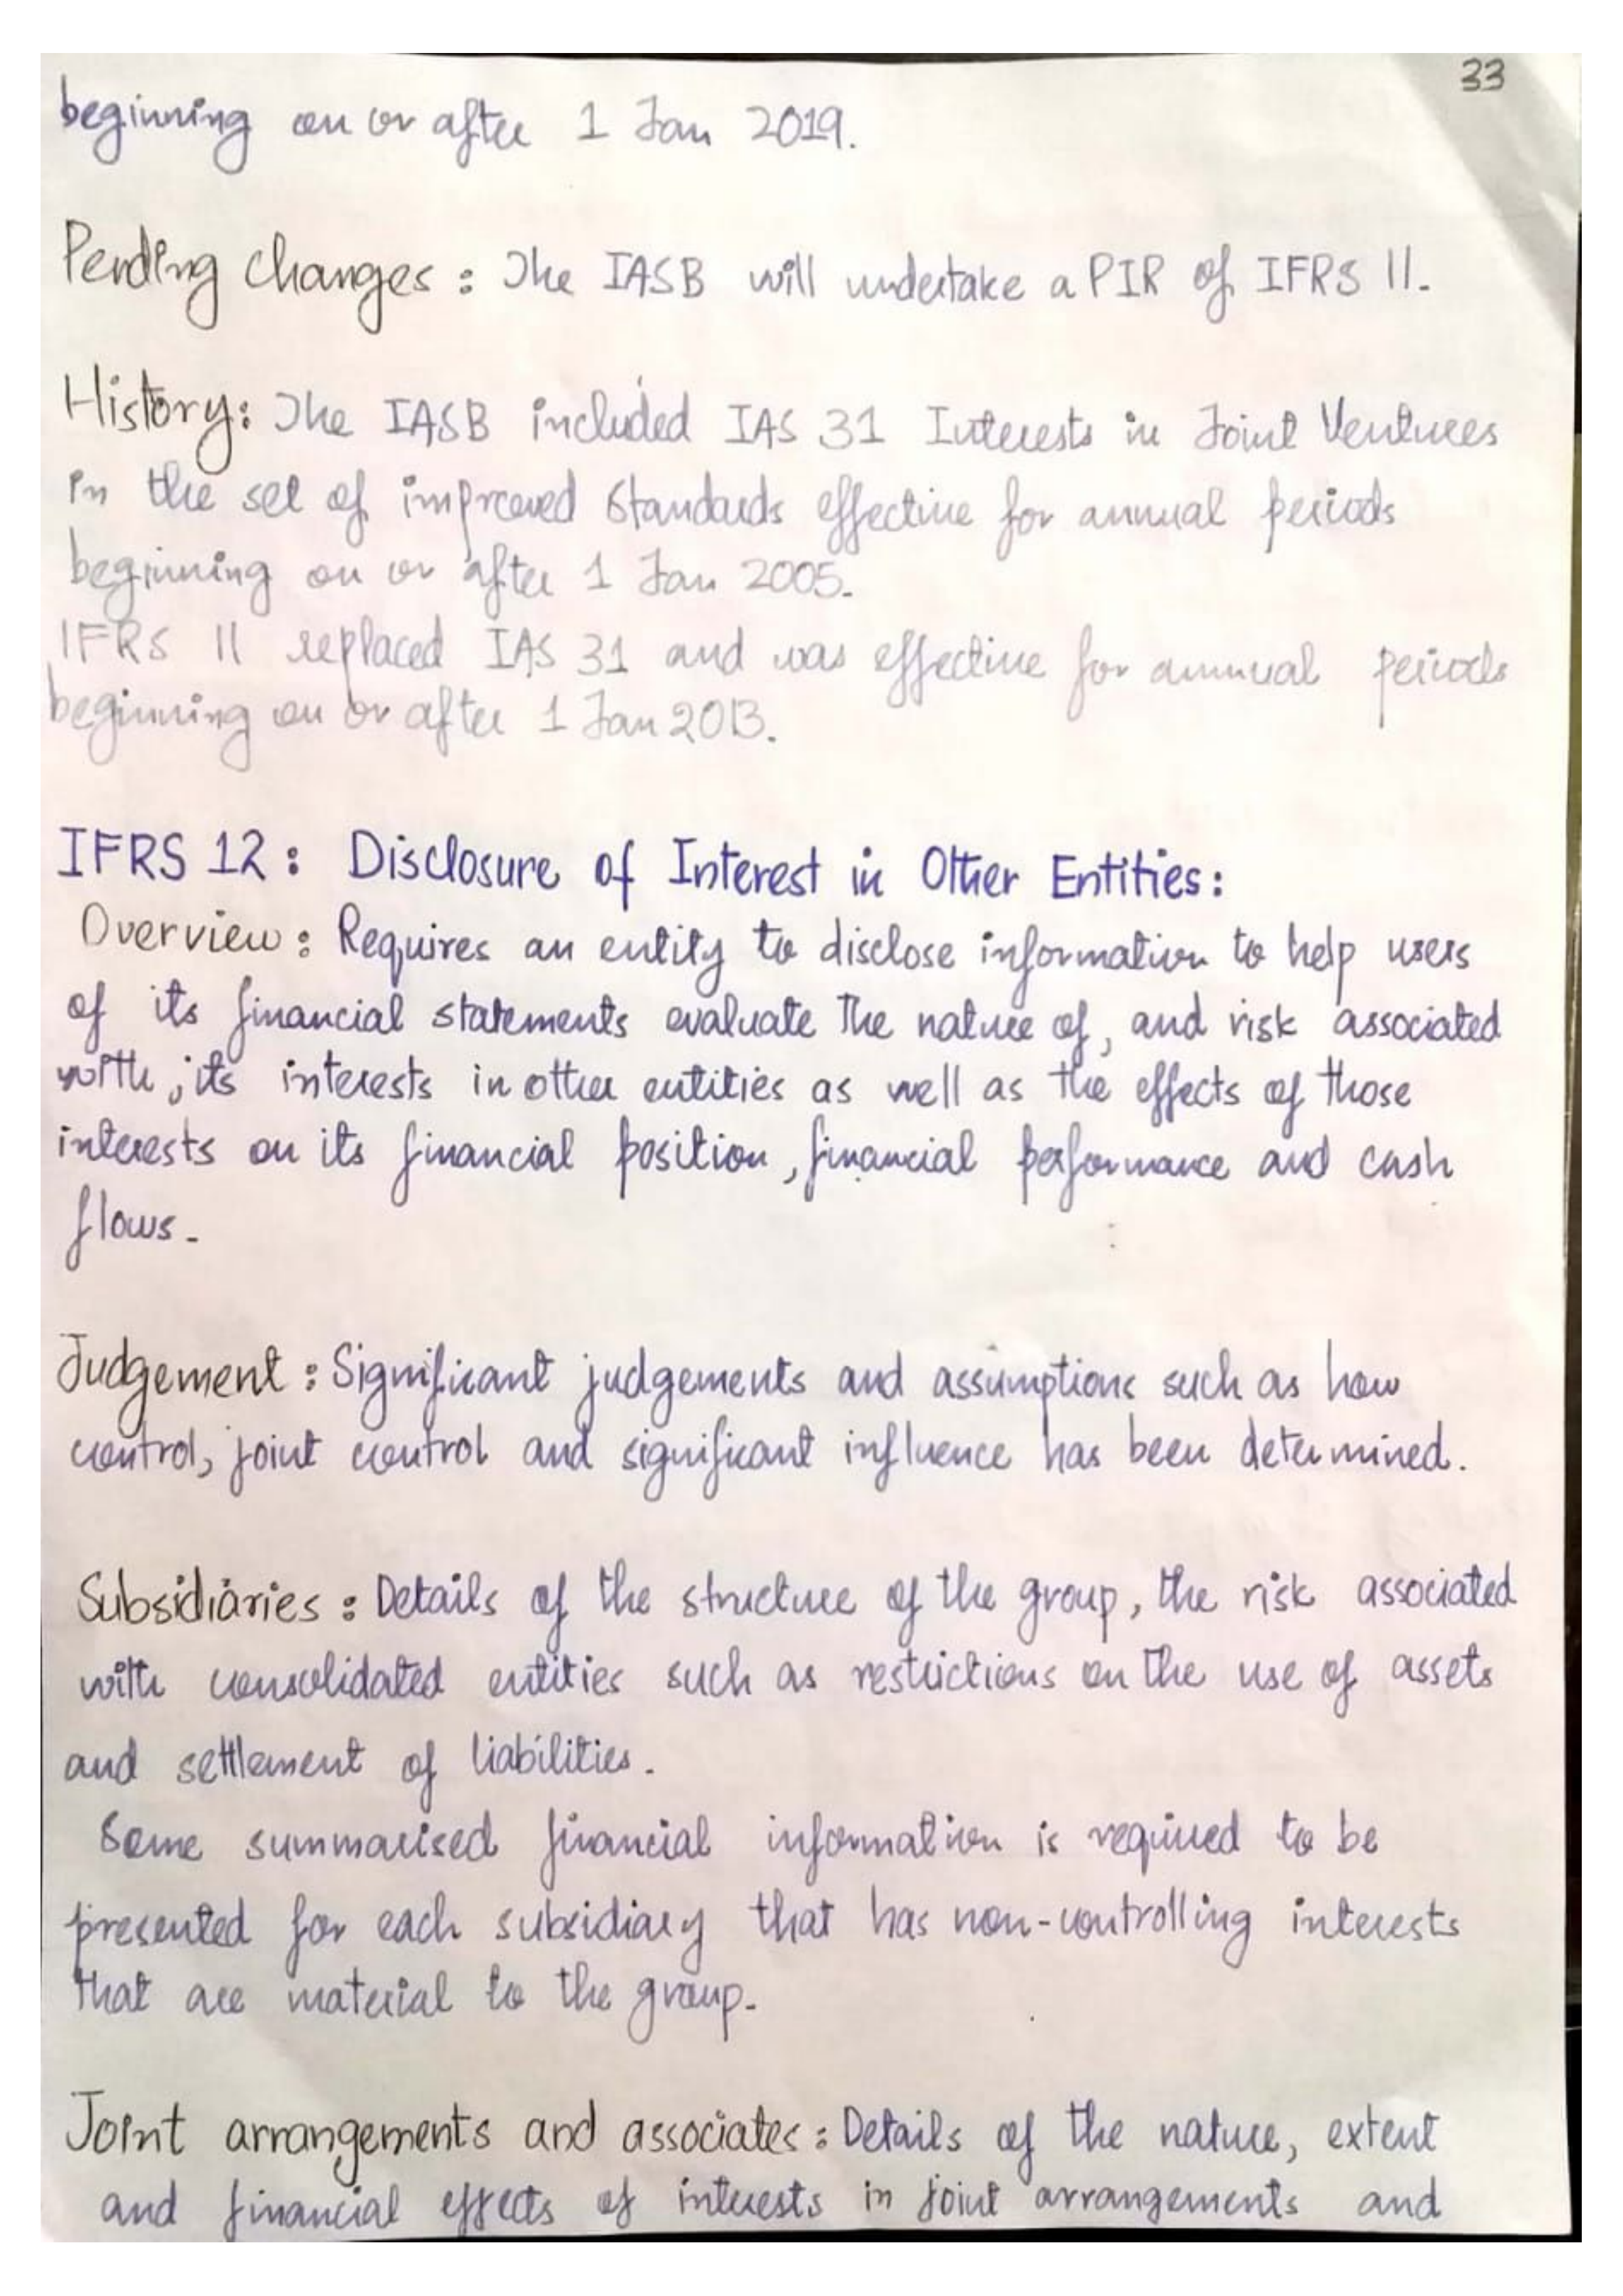 33
beginning on or after 1 Jan 2019.
Pending changes : The IASB will undertake a PIR of IFRS 11.
History: The IASB included IAS 31 Interests in Joint Ventures
in the set of improved Standards effective for annual periods
beginning on or after 1 Jan 2005.
IFRS 11 replaced IAS 31 and was effective for annual periods
beginning on or after 1 Jan 2013.
IFRS 12 : Disclosure of Interest in Other Entities :
Overview : Requires an entity to disclose information to help users
of its financial statements evaluate the nature of, and risk associated
with, its interests in other entities as well as the effects of those
interests on its financial position, financial performance and cash
flows.
Judgement : Significant judgements and assumptions such as how
control, joint control and significant influence has been determined.
Subsidiaries : Details of the structure of the group, the risk associated
with consolidated entities such as restrictions on the use of assets
and settlement of liabilities.
Some summarised financial information is required to be
presented for each subsidiary that has non-controlling interests
that are material to the group.
Joint arrangements and associates : Details of the nature, extent
and financial effects of interests in joint arrangements and